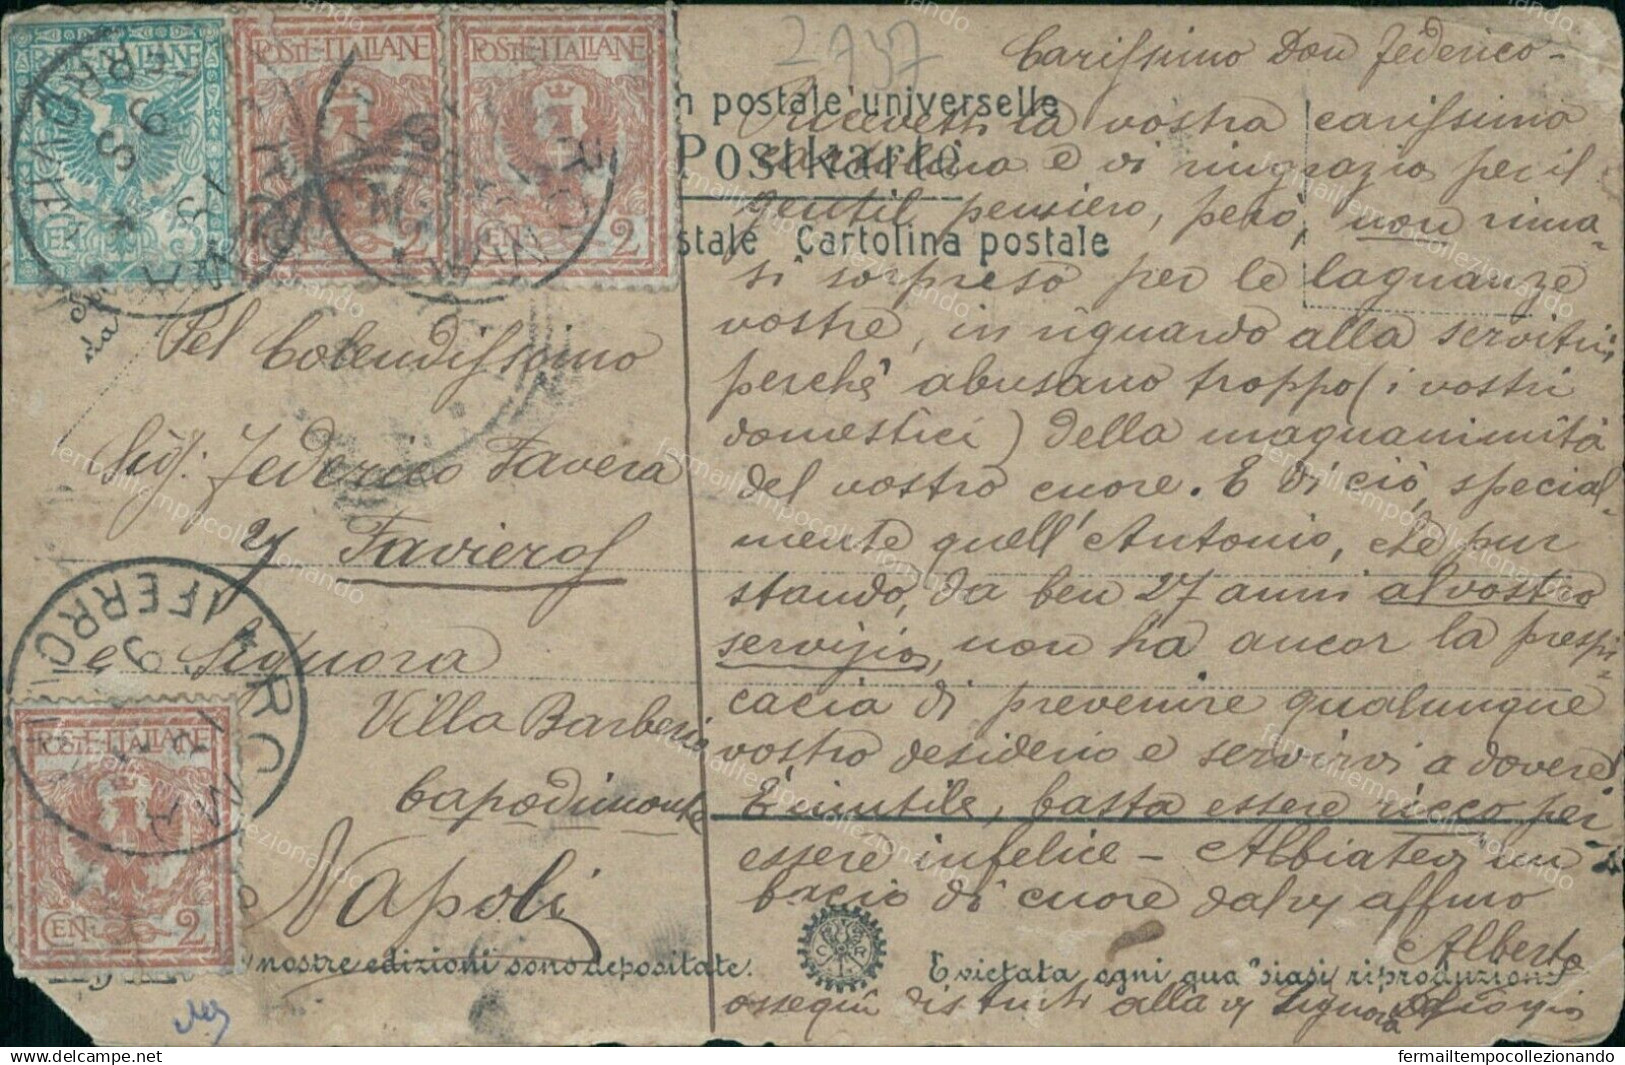 2737
Carissimo Don Federico-
n postale universelle
Postkarte
stale Cartolina postale
Ricevetti la vostra carissima
cartolina e vi ringrazio per il
gentil pensiero, però, non rima-
si sorpreso per le lagnanze
vostre, in riguardo alla servitù,
perchè abusano troppo (i vostri
domestici) della magnanimità
del vostro cuore. E di ciò, special-
mente quell'Antonio, che pur
stando, da ben 27 anni al vostro
servizio, non ha ancor la prespi-
cacia di prevenire qualunque
vostro desiderio e servirvi a dovere!
È inutile, basta essere ricco per
essere infelice - Abbiatevi un
bacio di cuore dal vy affmo
Alberto
ossequii distinti alla vy Signora
POSTE·ITALIANE
CEN. 5
POSTE·ITALIANE
CEN. 2
POSTE·ITALIANE
CEN. 2
Pel Colendissimo
Sig: Federico Tavera
y Tavieros
e Signora
Villa Barberio
Capodimonte
Napoli
ROMA
FERROVIA
POSTE·ITALIANE
CEN. 2
nostre edizioni sono depositate.
È vietata ogni qualsiasi riproduzione
delcampe.net
fermailtempocollezionando